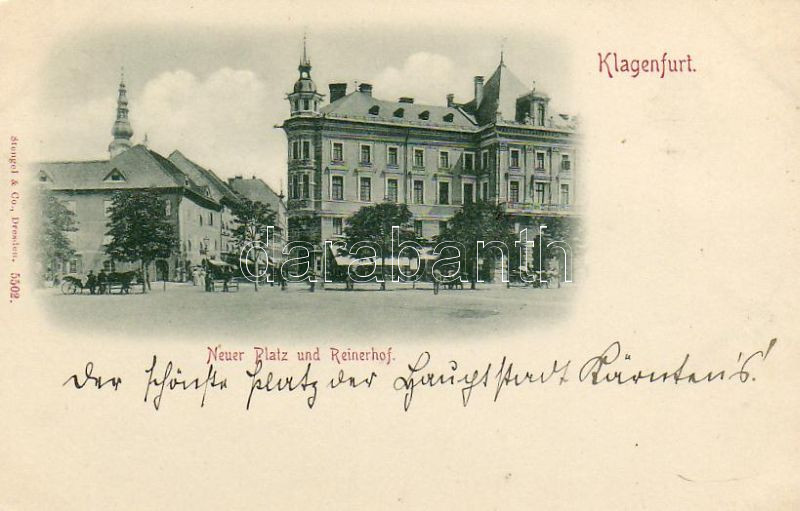 Klagenfurt.
Stengel & Co., Dresden. 5502.
darabanth
Neuer Platz und Reinerhof.
der schönste Platz der Hauptstadt Kärnten's!